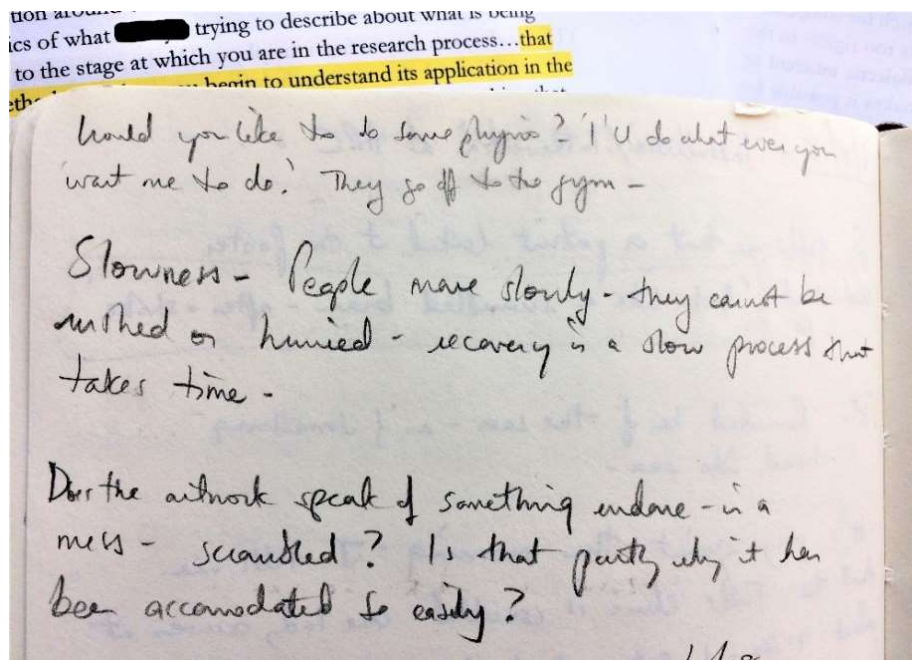 ics of what trying to describe about what is being
to the stage at which you are in the research process...that
begin to understand its application in the
would you like to do some physio? 'I'll do what ever you
want me to do.' They go off to the gym –
Slowness – People move slowly – they cannot be
rushed or hurried – recovery is a slow process that
takes time –
Does the artwork speak of something undone – in a
mess – scrambled? Is that partly why it has
been accomodated so easily?